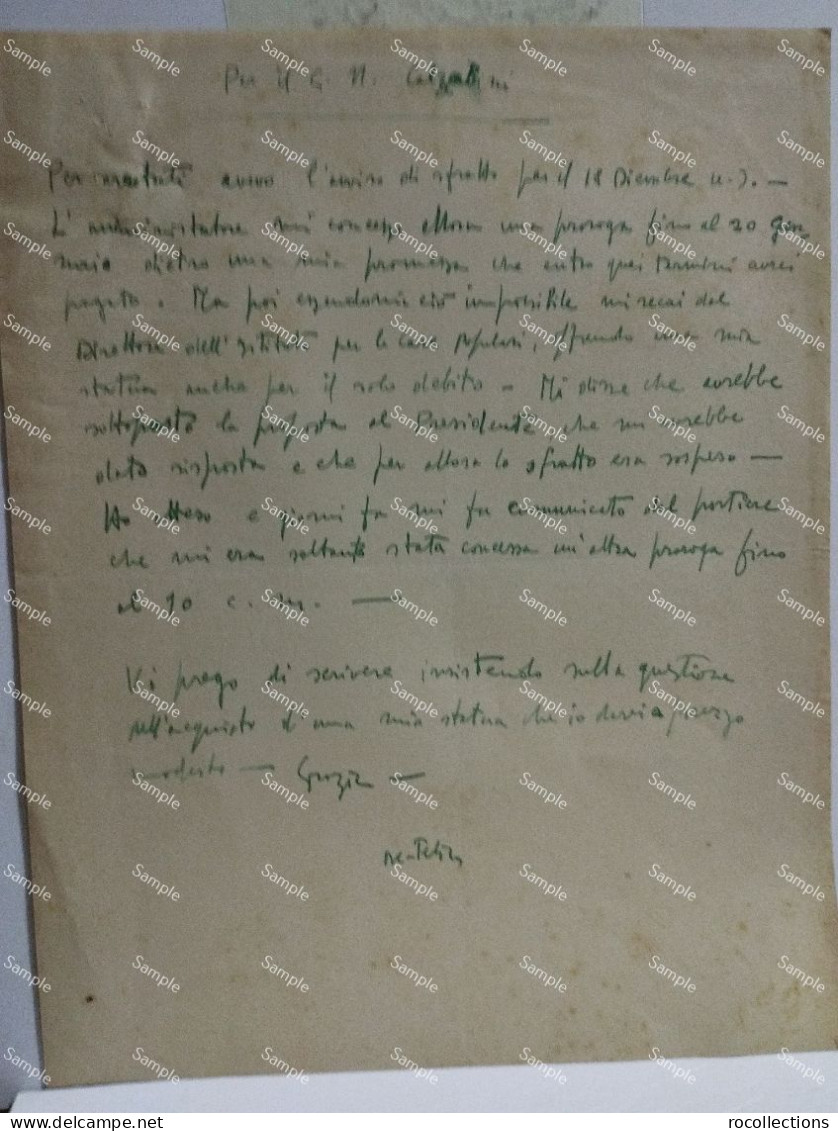 Per il G. N.
Per avevo l'avviso di sfratto per il 18 Dicembre u.s. —
L'amministratore mi concesse allora una proroga fino al 20 Gen
naio dietro una mia promessa che entro quei termini avrei
pagato. Ma poi essendomi ciò impossibile mi recai dal
Direttore dell'Istituto per le Case Popolari, offrendo una mia
statua anche per il solo debito — Mi disse che avrebbe
sottoposto la proposta al Presidente che mi avrebbe
dato risposta e che per allora lo sfratto era sospeso —
Ho atteso e giorni fa mi fu comunicato dal portiere
che mi era soltanto stata concessa un'altra proroga fino
al 10 c. m. —
Vi prego di scrivere insistendo sulla questione
dell'acquisto d'una mia statua che io a prezzo
modesto — Grazie —
Sample
www.delcampe.net
rocollections